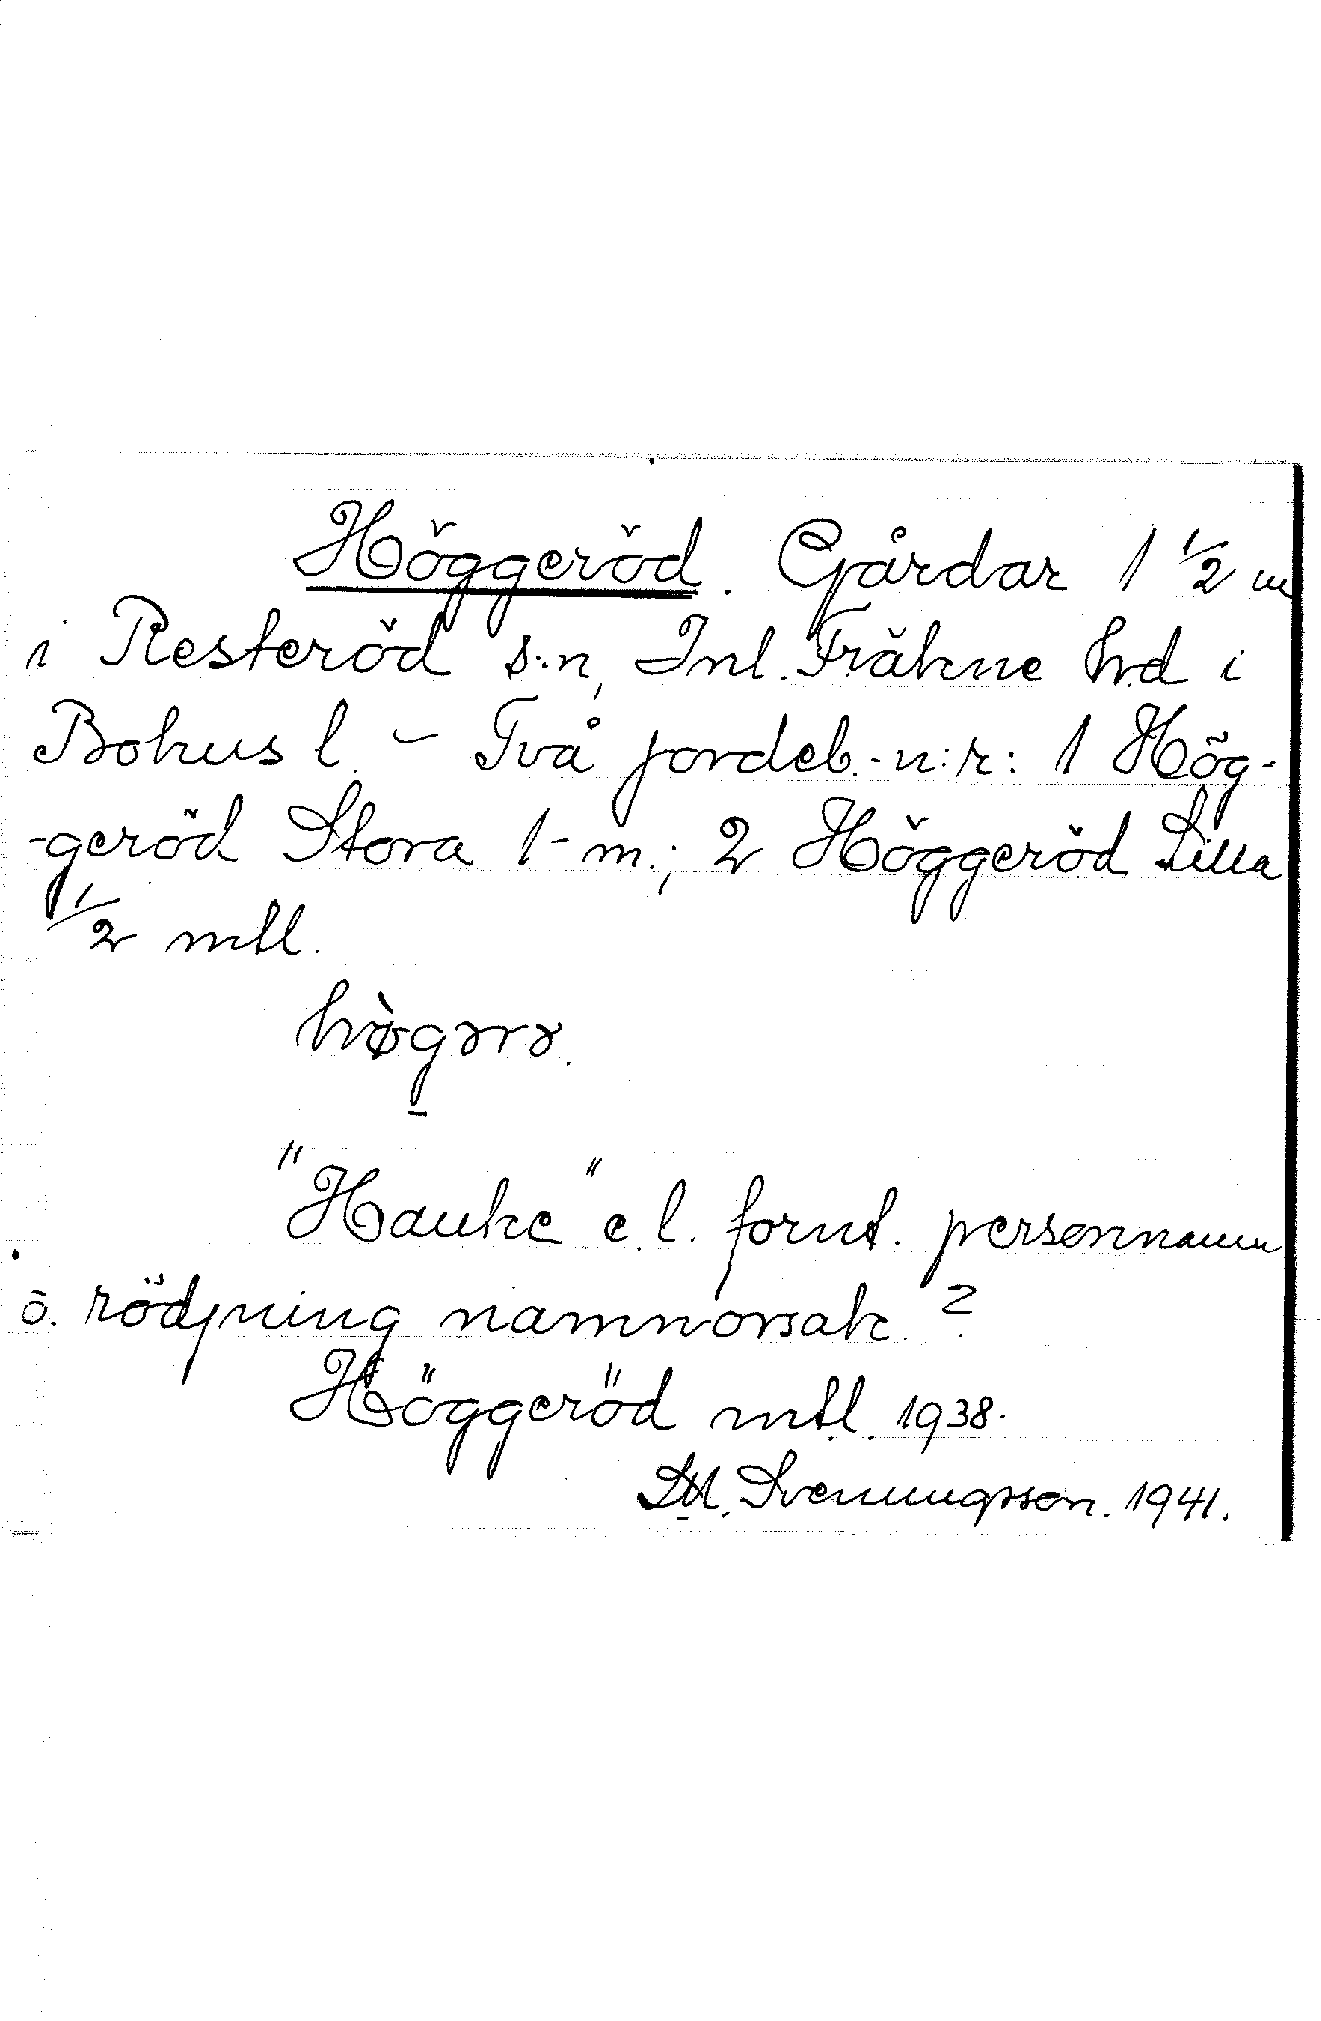 Höggeröd. Gårdar 1 1/2 m
i Resteröd s:n, Inl. Fräkne hd i
Bohus l. – Två jordeb.-n:r: 1 Hög-
-geröd Stora 1- m.; 2 Höggeröd Lilla
1/2 mtl.
hø̀gərə.
"Hauke" e.l. fornt. personnamn
o. rödjning namnorsak?
Höggeröd mtl. 1938.
Svenungsson. 1941.